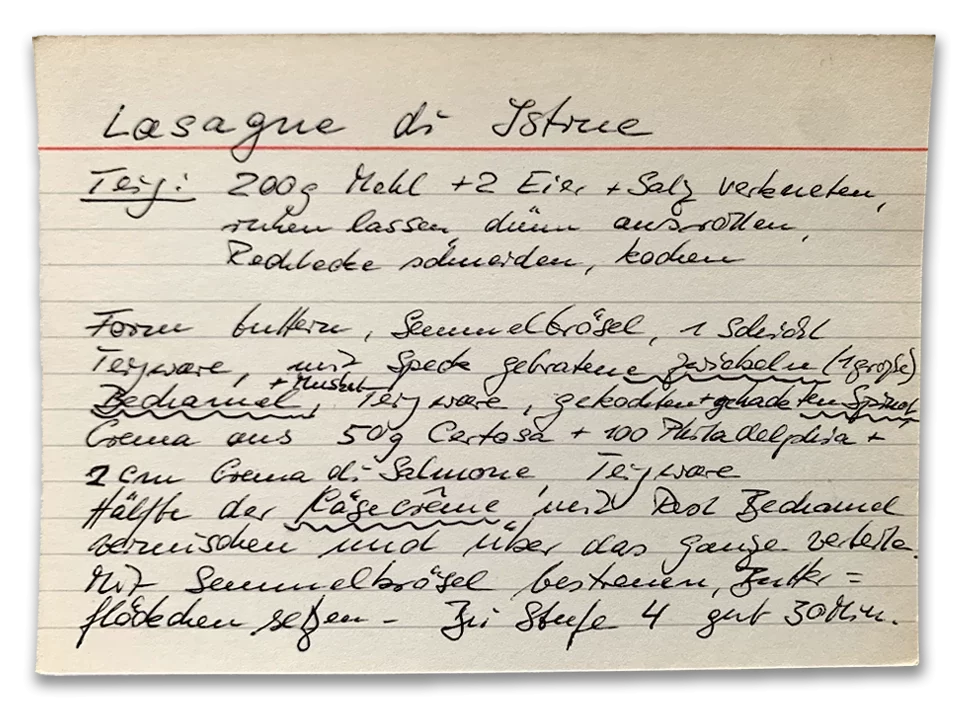 Lasagne di Istrue
Teig: 200g Mehl + 2 Eier + Salz verkneten,
ruhen lassen, dünn ausrollen,
Rechtecke schneiden, kochen
Form buttern, Semmelbrösel, 1 Schicht
Teigware, mit Speck gebratene Zwiebeln (1 große)
+ Muskat
Bechamel, Teigware, gekochten + gehackten Spinat,
Crema aus 50g Certosa + 100 Philadelphia +
2 cm Crema di Salmone, Teigware
Hälfte der Käsecrème mit Rest Bechamel
vermischen und über das ganze verteilen.
Mit Semmelbrösel bestreuen, Butter=
flöckchen setzen – Bei Stufe 4 gut 30 Min.